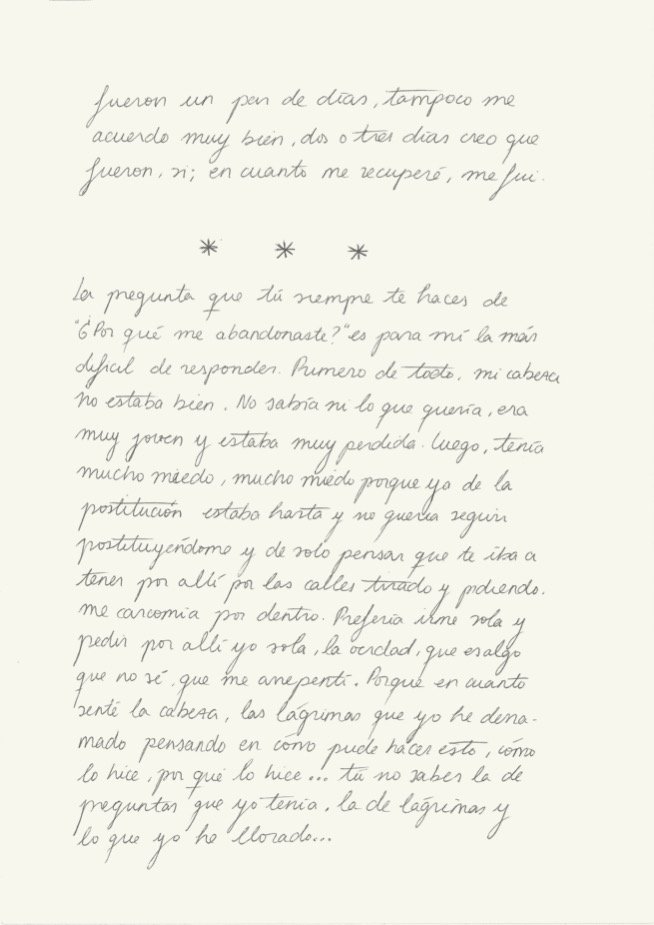 fueron un par de días, tampoco me
acuerdo muy bien, dos o tres días creo que
fueron, sí; en cuanto me recuperé, me fui.
* * *
La pregunta que tú siempre te haces de
"¿Por qué me abandonaste?" es para mí la más
difícil de responder. Primero de todo, mi cabeza
no estaba bien. No sabía ni lo que quería, era
muy joven y estaba muy perdida. Luego, tenía
mucho miedo, mucho miedo porque yo de la
prostitución estaba harta y no quería seguir
prostituyéndome y de solo pensar que te iba a
tener por allí por las calles tirado y pidiendo.
me carcomía por dentro. Prefería irme sola y
pedir por allí yo sola, la verdad, que es algo
que no sé, que me arrepentí. Porque en cuanto
senté la cabeza, las lágrimas que yo he derra-
mado pensando en cómo pude hacer esto, cómo
lo hice, por qué lo hice... tú no sabes la de
preguntas que yo tenía, la de lágrimas y
lo que yo he llorado...